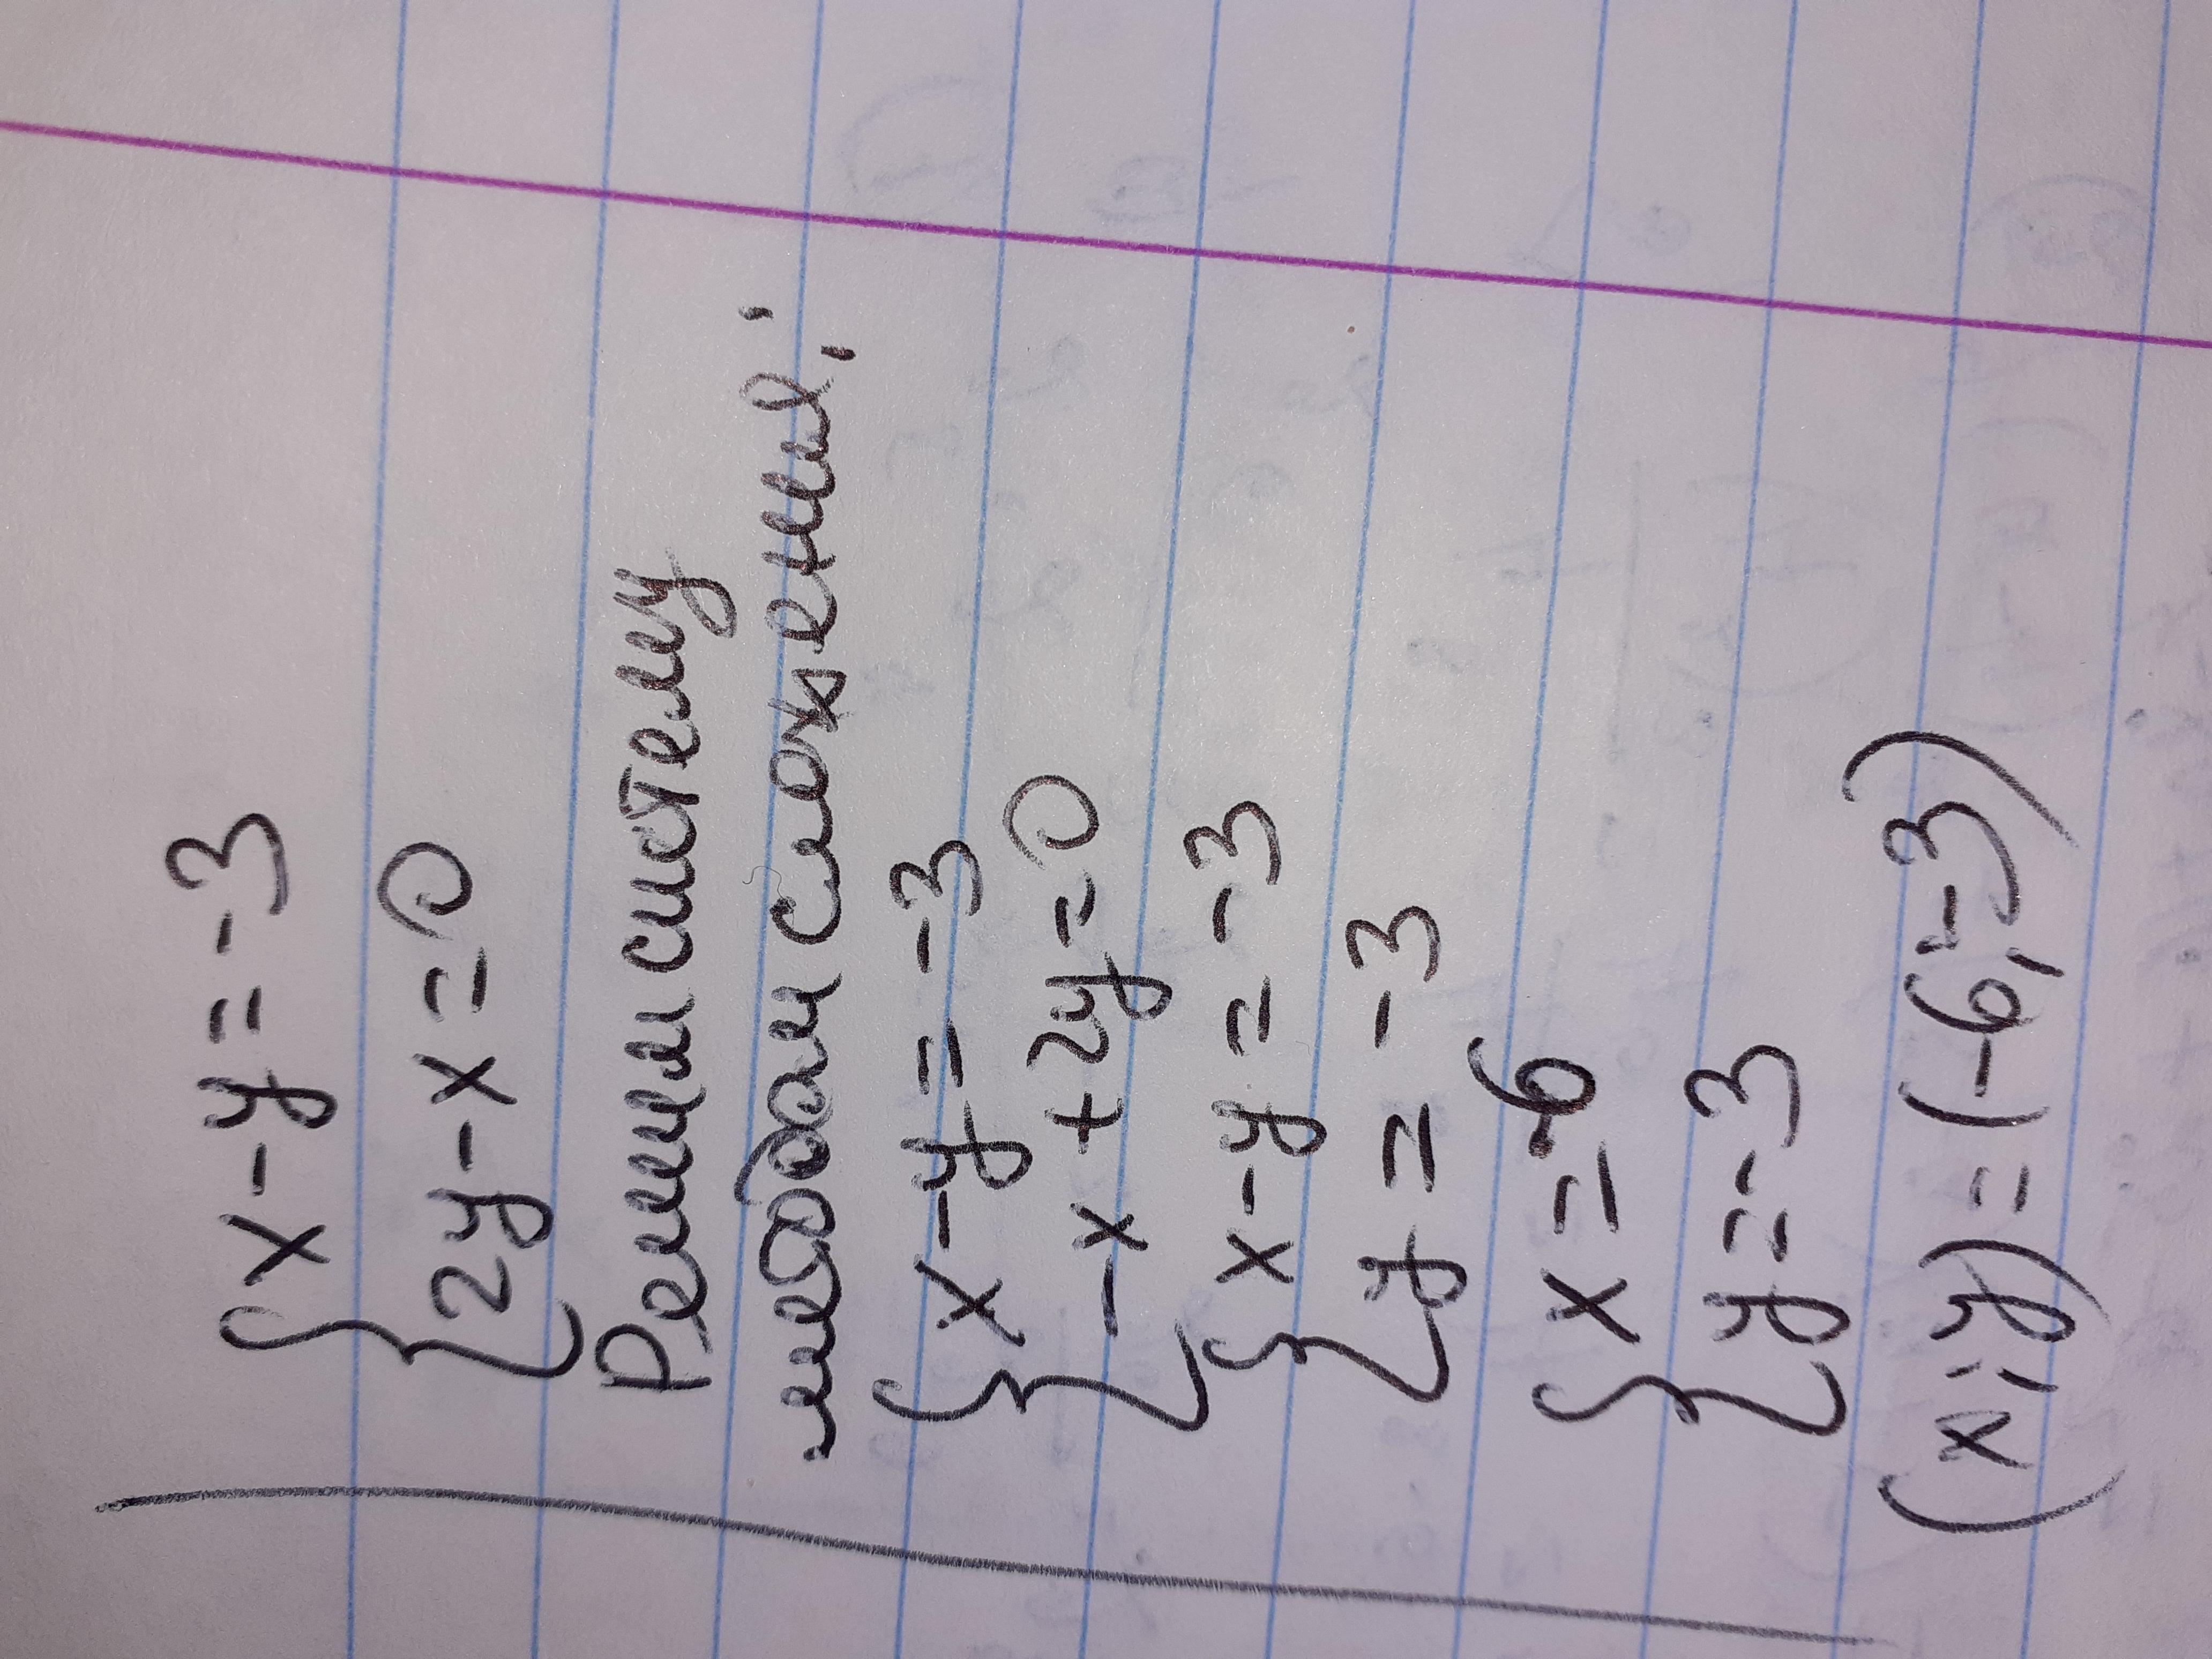 { x - y = -3
2y - x = 0
Решим систему
методом сложения;
{ x - y = -3
-x + 2y = 0
{ x - y = -3
y = -3
{ x = -6
y = -3
(x; y) = (-6; -3)